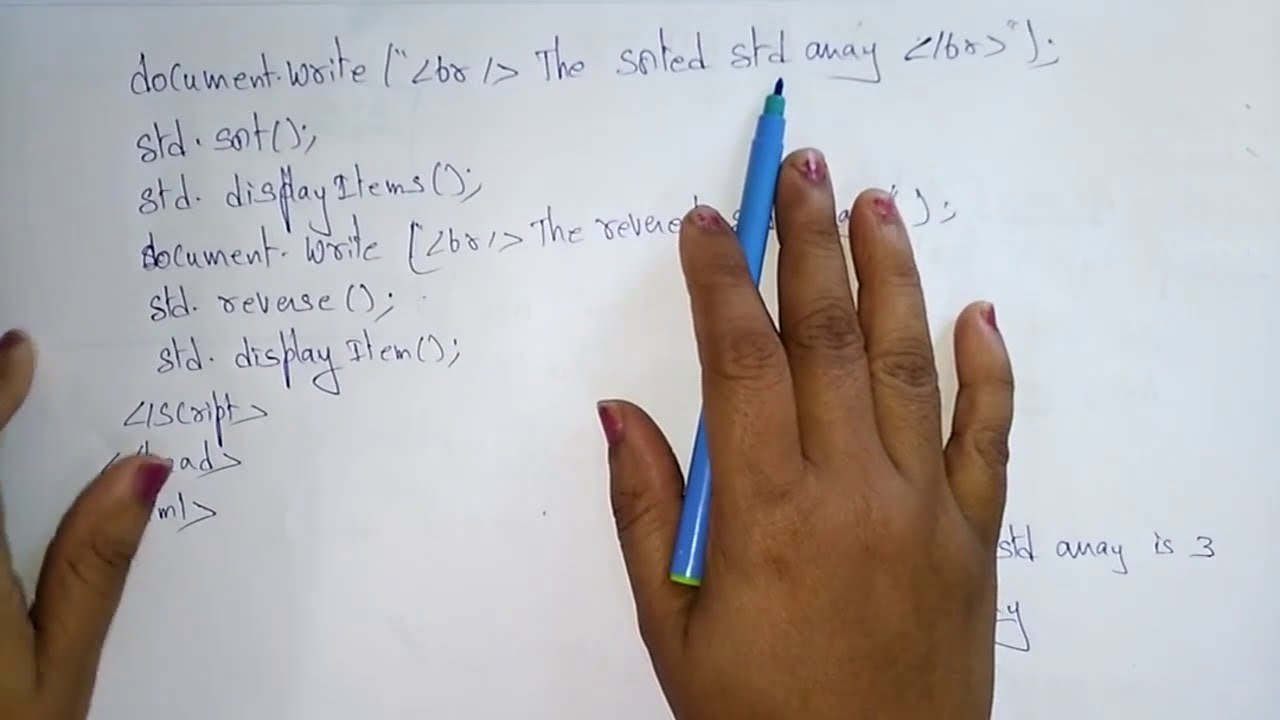 document.write ("<br/> The sorted std array </br>");
std.sort();
std. displayItems();
document. write ("<br/> The ");
std. reverse();
std. displayItem();
</script>
std array is 3